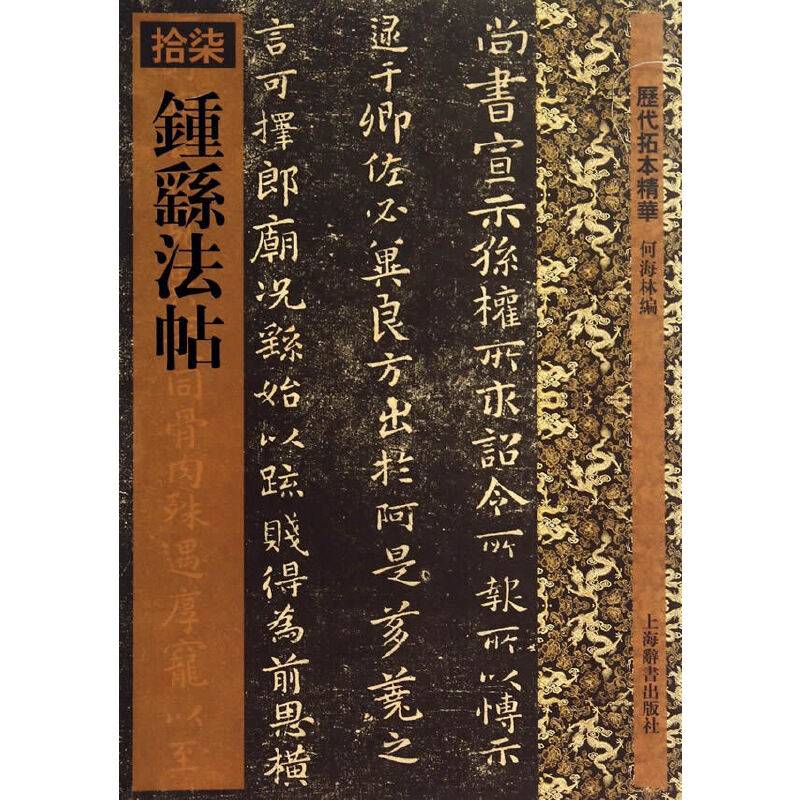 歷代拓本精華
何海林编
上海辭書出版社
尚書宣示孫權所求詔令所報所以博示
逮于卿佐必冀良方出於阿是芻蕘之
言可擇郎廟況繇始以疏賤得為前恩橫
拾柒
鍾繇法帖
同骨肉殊遇厚寵以至